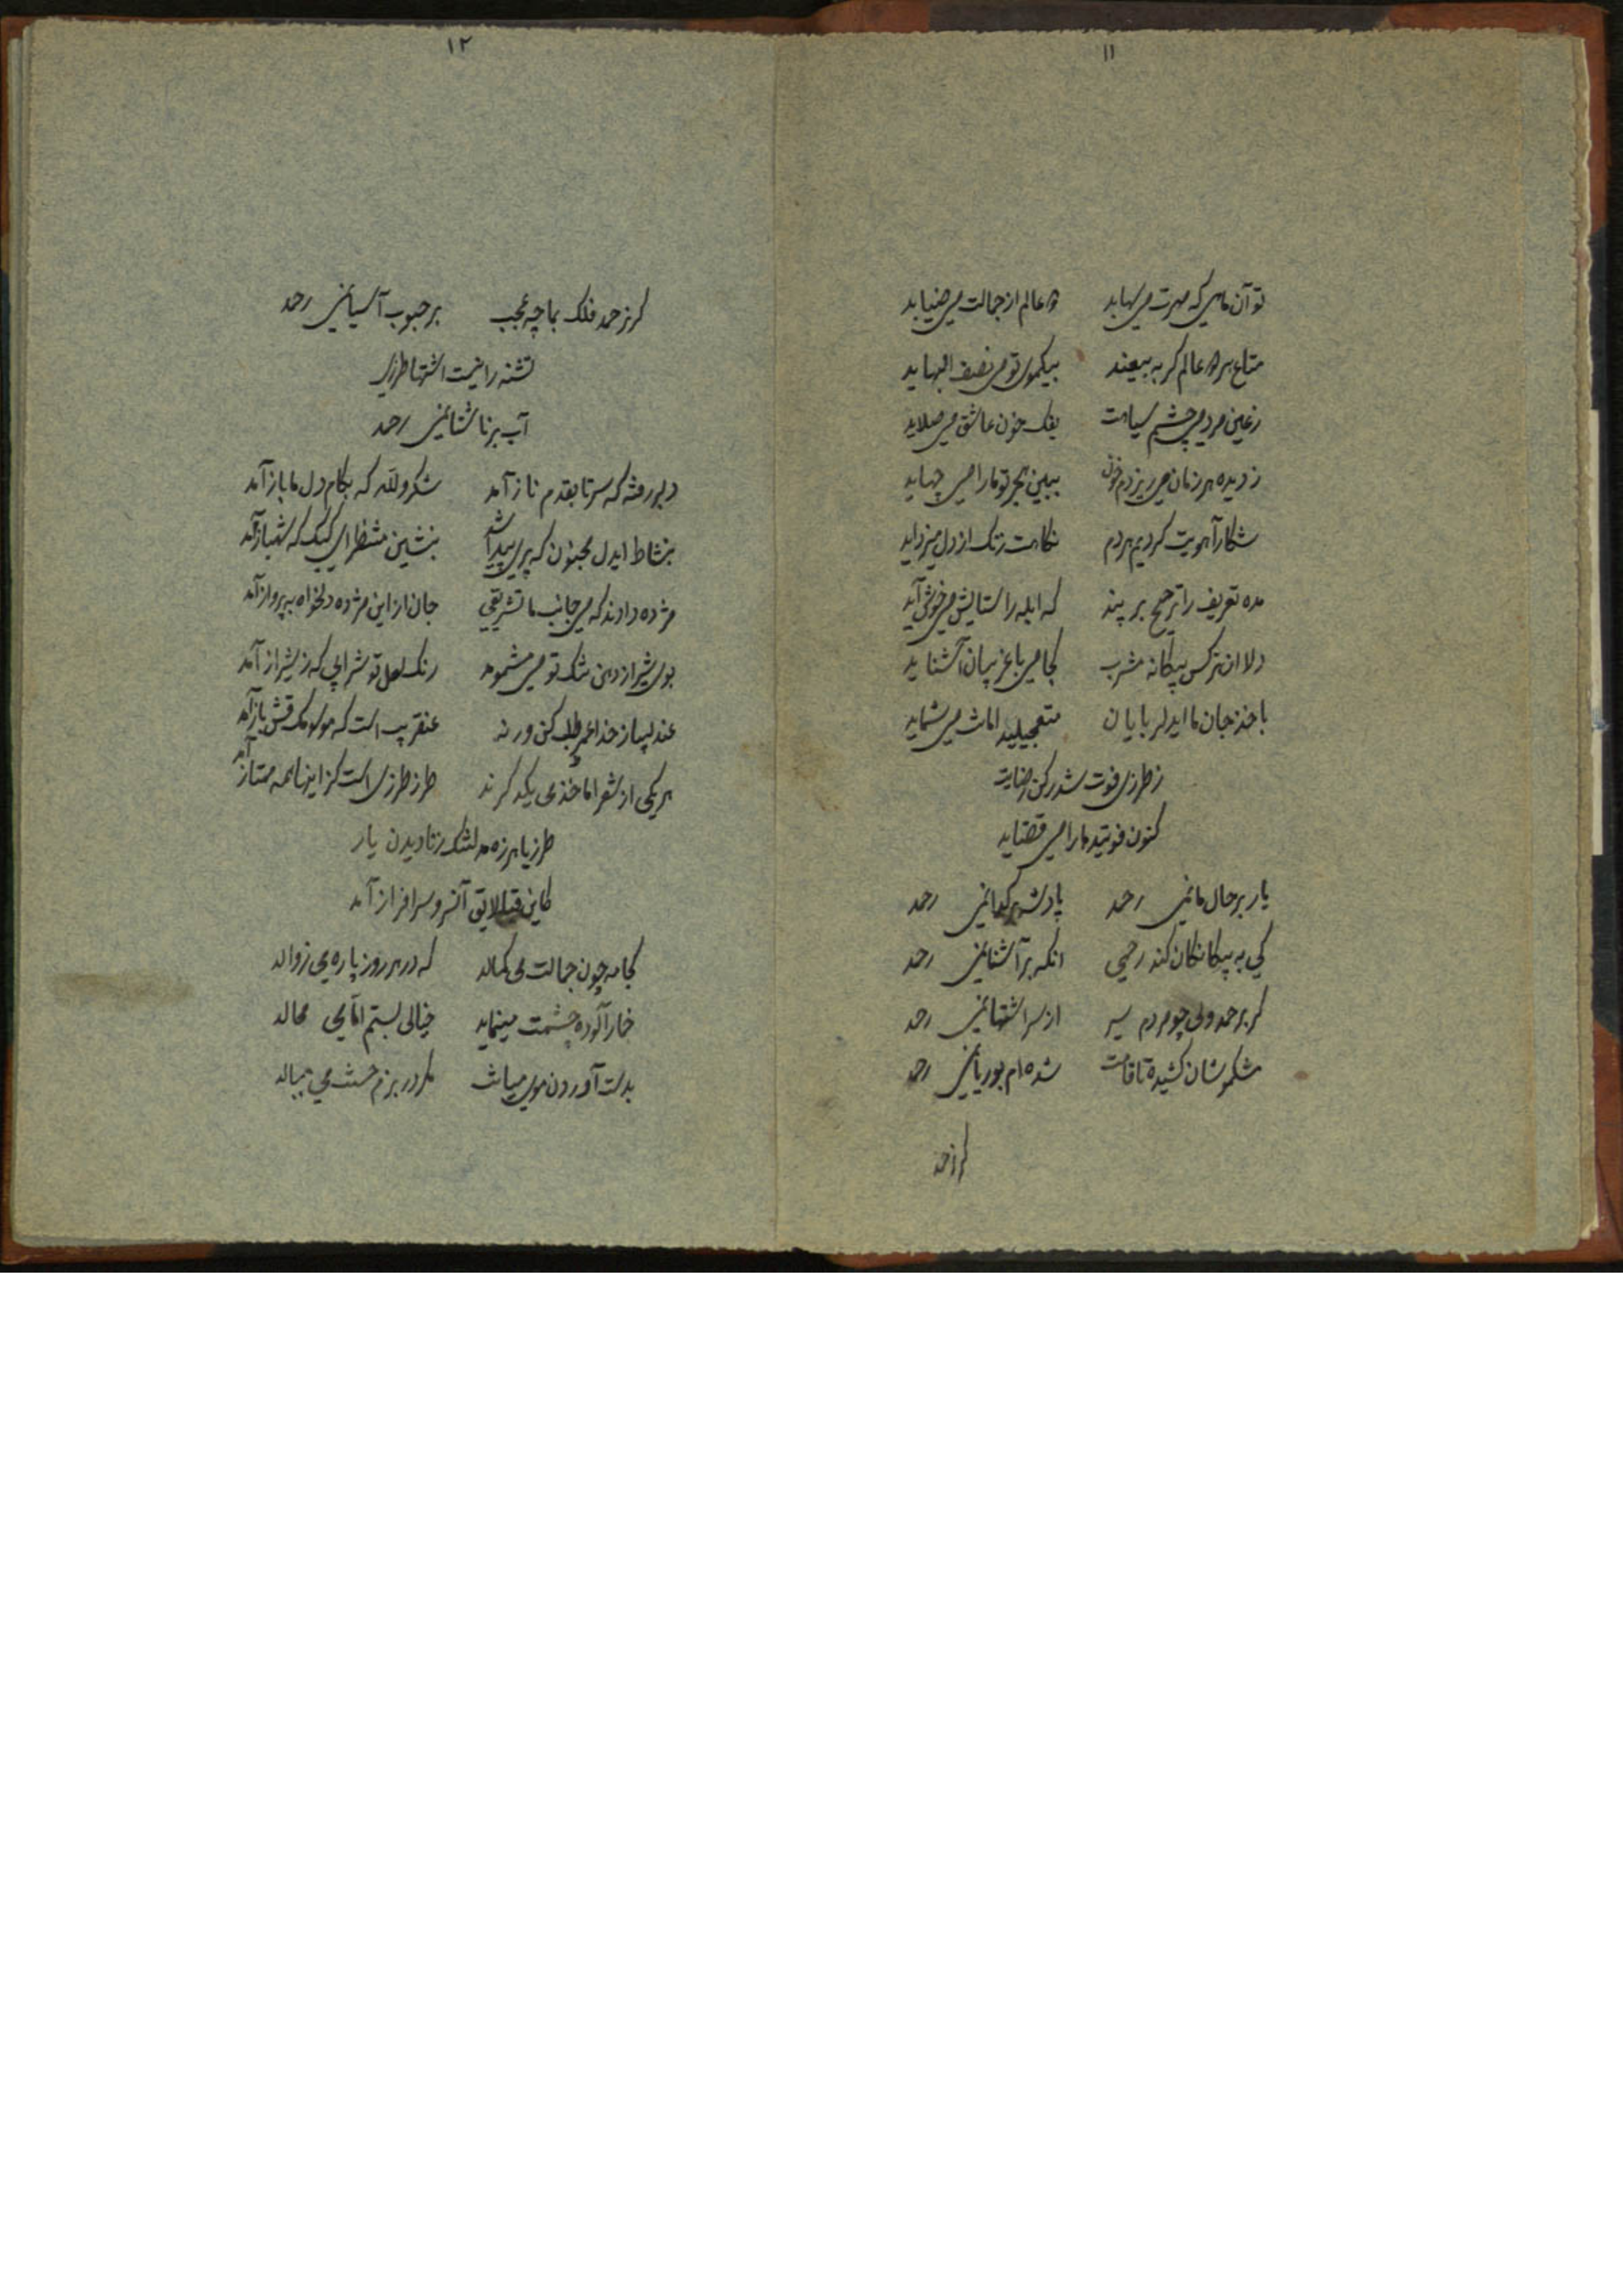 ۱۱
تو آن ماهی که مهرت می سهاید دو عالم از جمالت می ضیاید
متاع هر دو عالم گر به بیعند بیکموی تو می نصف البهاید
ز عین مردمی چشم سیاهت بفک خون عاشق می صلاید
ز دیده هر زمان می ریزدم خون ببین هجر تو ما را می چهاید
شکار آهویت کردیم هر دم نگاهت زنگ از دل میزداید
مده تعریف را ترجیح بر پند که ابله را ستایش می خوش آید
دلا ان نرگس بیگانه مشرب کجا می با غریبان آشناید
باخذ جان ما ای دلربایان متعجیلید اما می شماید
ز طرزی فوت شد رکن رضایت
کنون فوتید ما را می قضاید
یار بر حال ما نمی رحمد پادشه بر گدا نمی رحمد
کی به بیگانگان کند رحمی انکه بر آشنا نمی رحمد
گر برحمد ولی چو مردم سیر از سر اشتها نمی رحمد
شکموشان کشیده تا قامت شده ام بوریا نمی رحمد
گر نرحمد
۱۲
گر نرحمد فلک بما چه عجب بر حبوب آسیا نمی رحمد
تشنه را نیست اشتها طرزی
آب بر ناشتا نمی رحمد
دلبر رفته که سر تا بقدم ناز آمد شکر و لله که بکام دل ما باز آمد
بنشاط ایدل مجنون که پری پیدا شد بنشین منتظر ای کبک که شهباز آمد
مژده دادند که می جانب ما تشریفی جان از این مژده دلخواه به پرواز آمد
بوی شیر از دهن تنگ تو می مشمومد رنگ لعل تو شرابی که ز شیراز آمد
عندلیبا ز خدا عمر طلب کن ور نه عنقریب است که موسومک قش باز آمد
هر یکی از شعرا ماخذی یکدگرند طرز طرزی است کز اینها همه ممتاز آمد
طرزیا هرزه مد لشک زنا دیدن یار
کاین قبا لایق آن سرو سرافراز آمد
کجا مه چون جمالت می کمالد که در هر روز پاره می زوالد
خمار آلوده چشمت مینماید خیالی بستم اما می محالد
بدست آوردن موی میانت مگر در بزم حسنت می مبالد